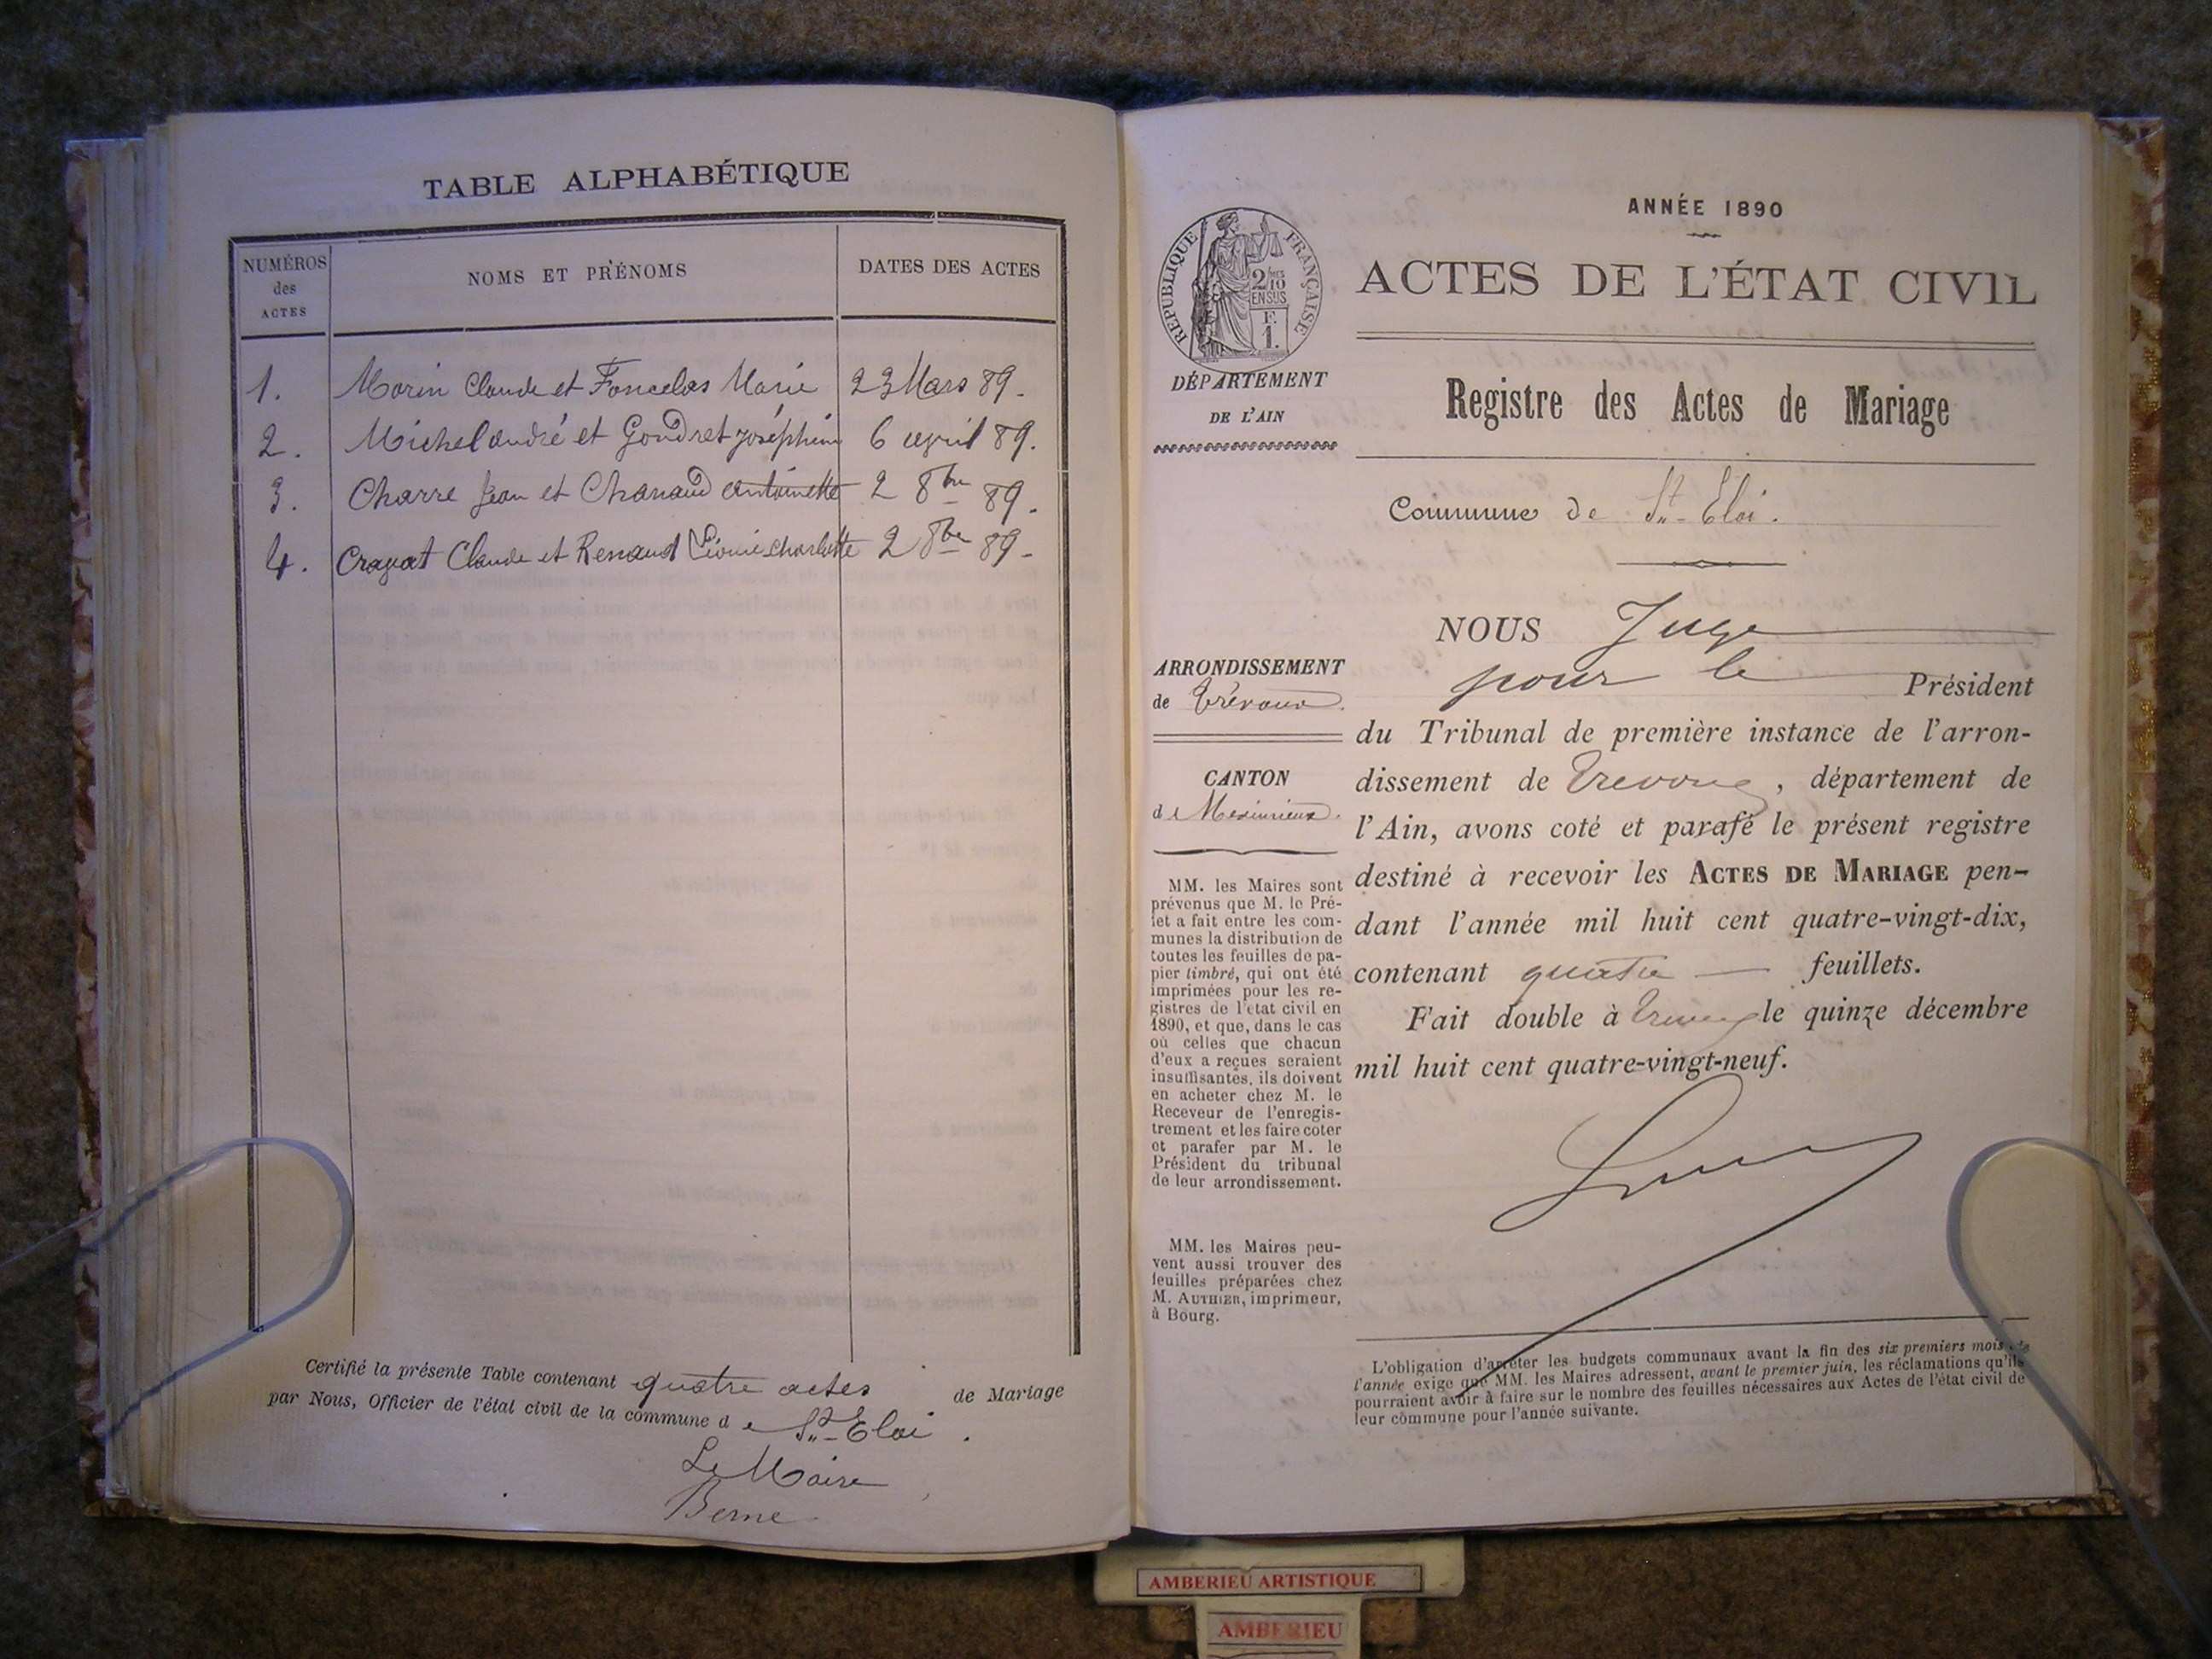 TABLE ALPHABÉTIQUE
NUMÉROS des ACTES NOMS ET PRÉNOMS DATES DES ACTES
1. Morin Claude et Foncelas Marie 23 Mars 89.
2. Michel andré et Gondret joséphine 6 avril 89.
3. Charre Jean et Chanaud antoinette 2 8bre 89.
4. Cravat Claude et Renaud Léonie charlotte 2 8bre 89.
Certifié la présente Table contenant quatre actes de Mariage
par Nous, Officier de l'état civil de la commune de St-Eloi.
Le Maire
Berne
ANNÉE 1890
RÉPUBLIQUE FRANÇAISE
2/10 EN SUS
F. 1.
ACTES DE L'ÉTAT CIVIL
DÉPARTEMENT
DE L'AIN
Registre des Actes de Mariage
Commune de St-Eloi.
ARRONDISSEMENT
de Trévoux.
CANTON
de Meximieux.
MM. les Maires sont
prévenus que M. le Pré-
fet a fait entre les com-
munes la distribution de
toutes les feuilles de pa-
pier timbré, qui ont été
imprimées pour les re-
gistres de l'état civil en
1890, et que, dans le cas
où celles que chacun
d'eux a reçues seraient
insuffisantes, ils doivent
en acheter chez M. le
Receveur de l'enregis-
trement et les faire coter
et parafer par M. le
Président du tribunal
de leur arrondissement.
MM. les Maires peu-
vent aussi trouver des
feuilles préparées chez
M. AUTHIER, imprimeur,
à Bourg.
NOUS Juge
pour le Président
du Tribunal de première instance de l'arron-
dissement de Trevoux, département de
l'Ain, avons coté et parafé le présent registre
destiné à recevoir les ACTES DE MARIAGE pen-
dant l'année mil huit cent quatre-vingt-dix,
contenant quatre feuillets.
Fait double à Trevoux le quinze décembre
mil huit cent quatre-vingt-neuf.
L'obligation d'arrêter les budgets communaux avant la fin des six premiers mois de
l'année exige que MM. les Maires adressent, avant le premier juin, les réclamations qu'ils
pourraient avoir à faire sur le nombre des feuilles nécessaires aux Actes de l'état civil de
leur commune pour l'année suivante.
AMBERIEU ARTISTIQUE
AMBERIEU